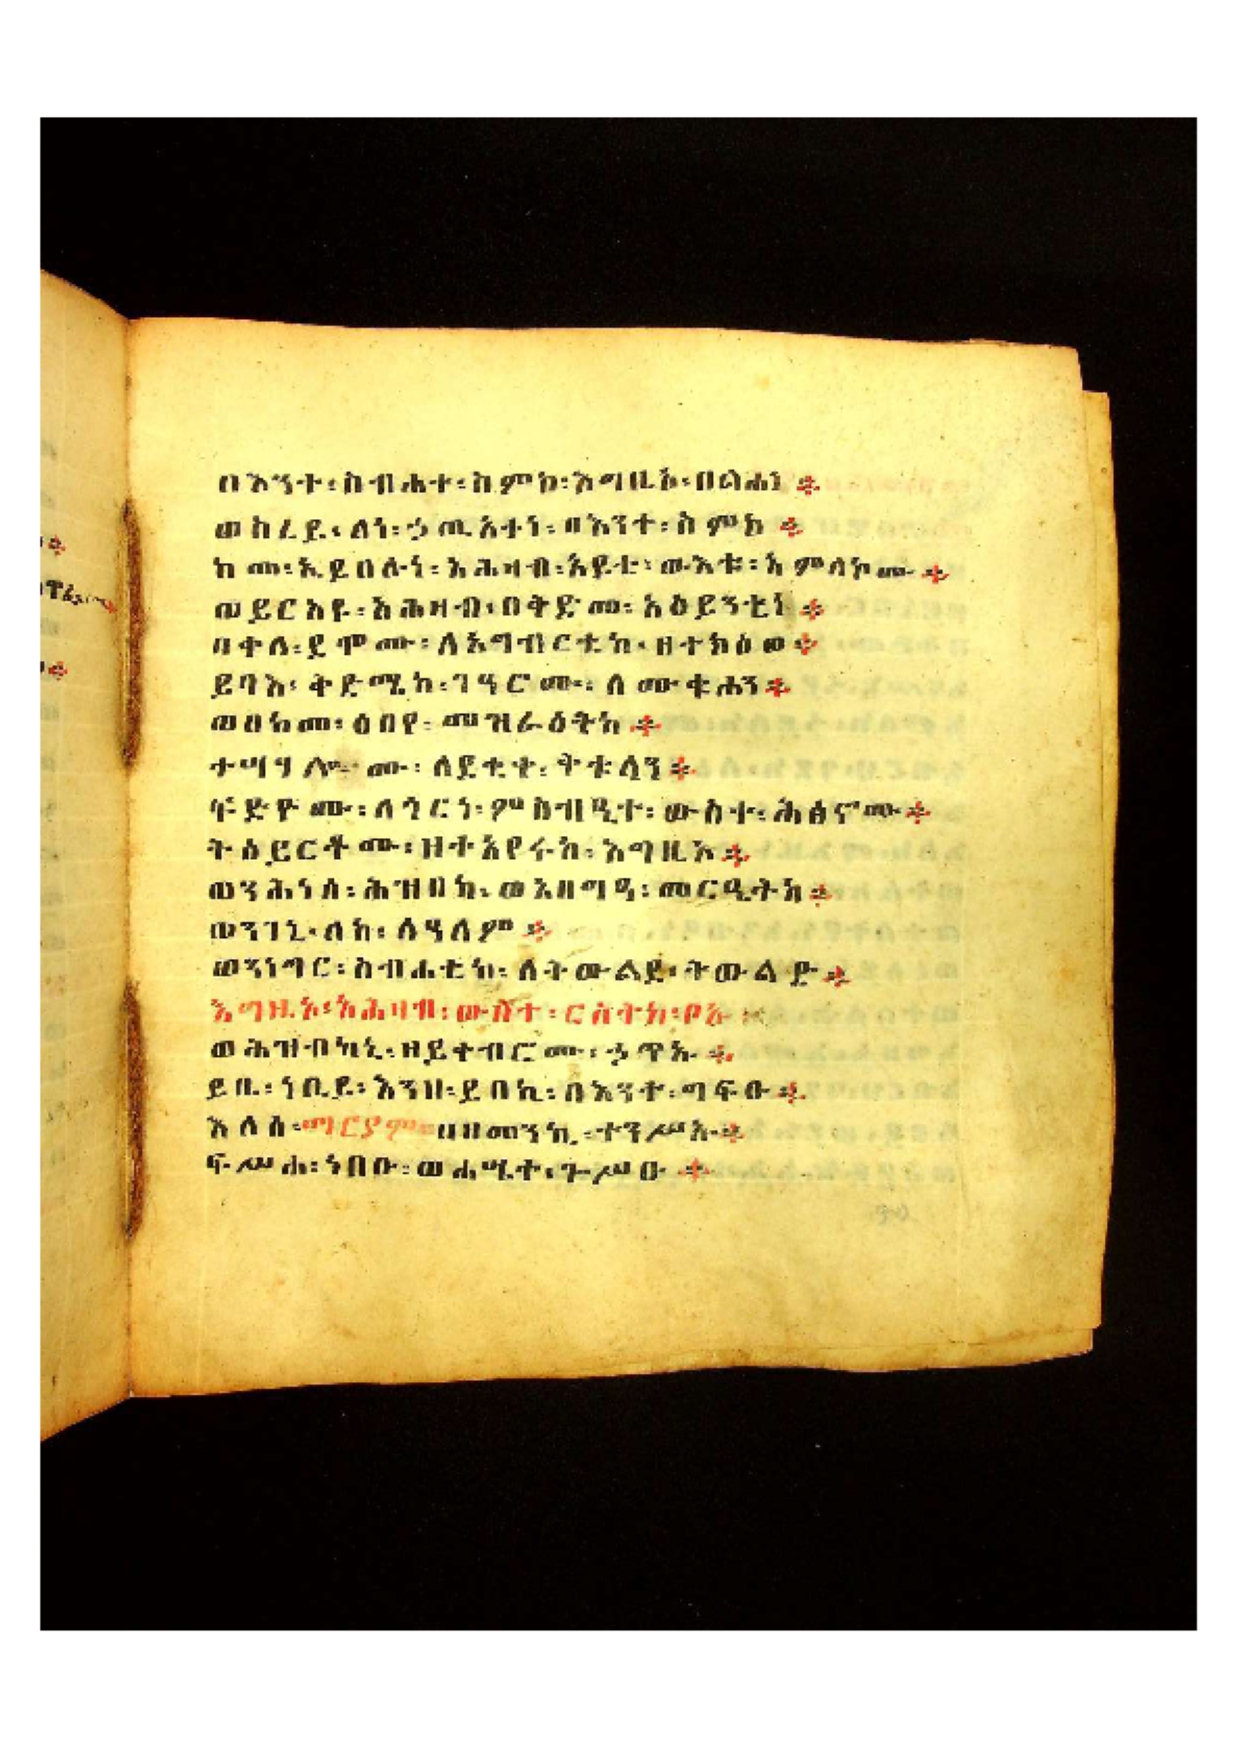 በእንተ፡ስብሐተ፡ስምከ፡እግዚኦ፡በልሐነ፨
ወስረይ፡ለነ፡ኃጢአተነ፡በእንተ፡ስምከ፨
ከመ፡ኢይበሉነ፡አሕዛብ፡አይቴ፡ውእቱ፡አምላኮሙ፨
ወይርአዩ፡አሕዛብ፡በቅድመ፡አዕይንቲነ፨
በቀለ፡ደሞሙ፡ለአግብርቲከ፡ዘተክዕወ፨
ይባእ፡ቅድሜከ፡ገዓሮሙ፡ለሙቁሐን፨
ወበከመ፡ዕበየ፡መዝራዕትከ፨
ተሣሃሎሙ፡ለደቂቀ፡ቅቱላን፨
ፍድዮሙ፡ለጎርነ፡ምስብዒተ፡ውስተ፡ሕፅኖሙ፨
ትዕይርቶሙ፡ዘተአየሩከ፡እግዚኦ፨
ወንሕነሰ፡ሕዝበከ፡ወአባግዓ፡መርዔትከ፨
ወንገኒ፡ለከ፡ለዓለም፨
ወንነግር፡ስብሐቲከ፡ለትውልደ፡ትውልድ፨
እግዚኦ፡አሕዛብ፡ውስተ፡ርስትከ፡ቦኡ፨
ወሕዝብኪኒ፡ዘይቀብሮሙ፡ኃጥአ፨
ይቤ፡ነቢይ፡እንዘ፡ይበኪ፡በእንተ፡ግፍዑ፨
እለሰ፡ማርያም፡በዘመንኪ፡ተንሥአ፨
ፍሥሐ፡ነበቡ፡ወሐሤተ፡ጉሥዑ፨